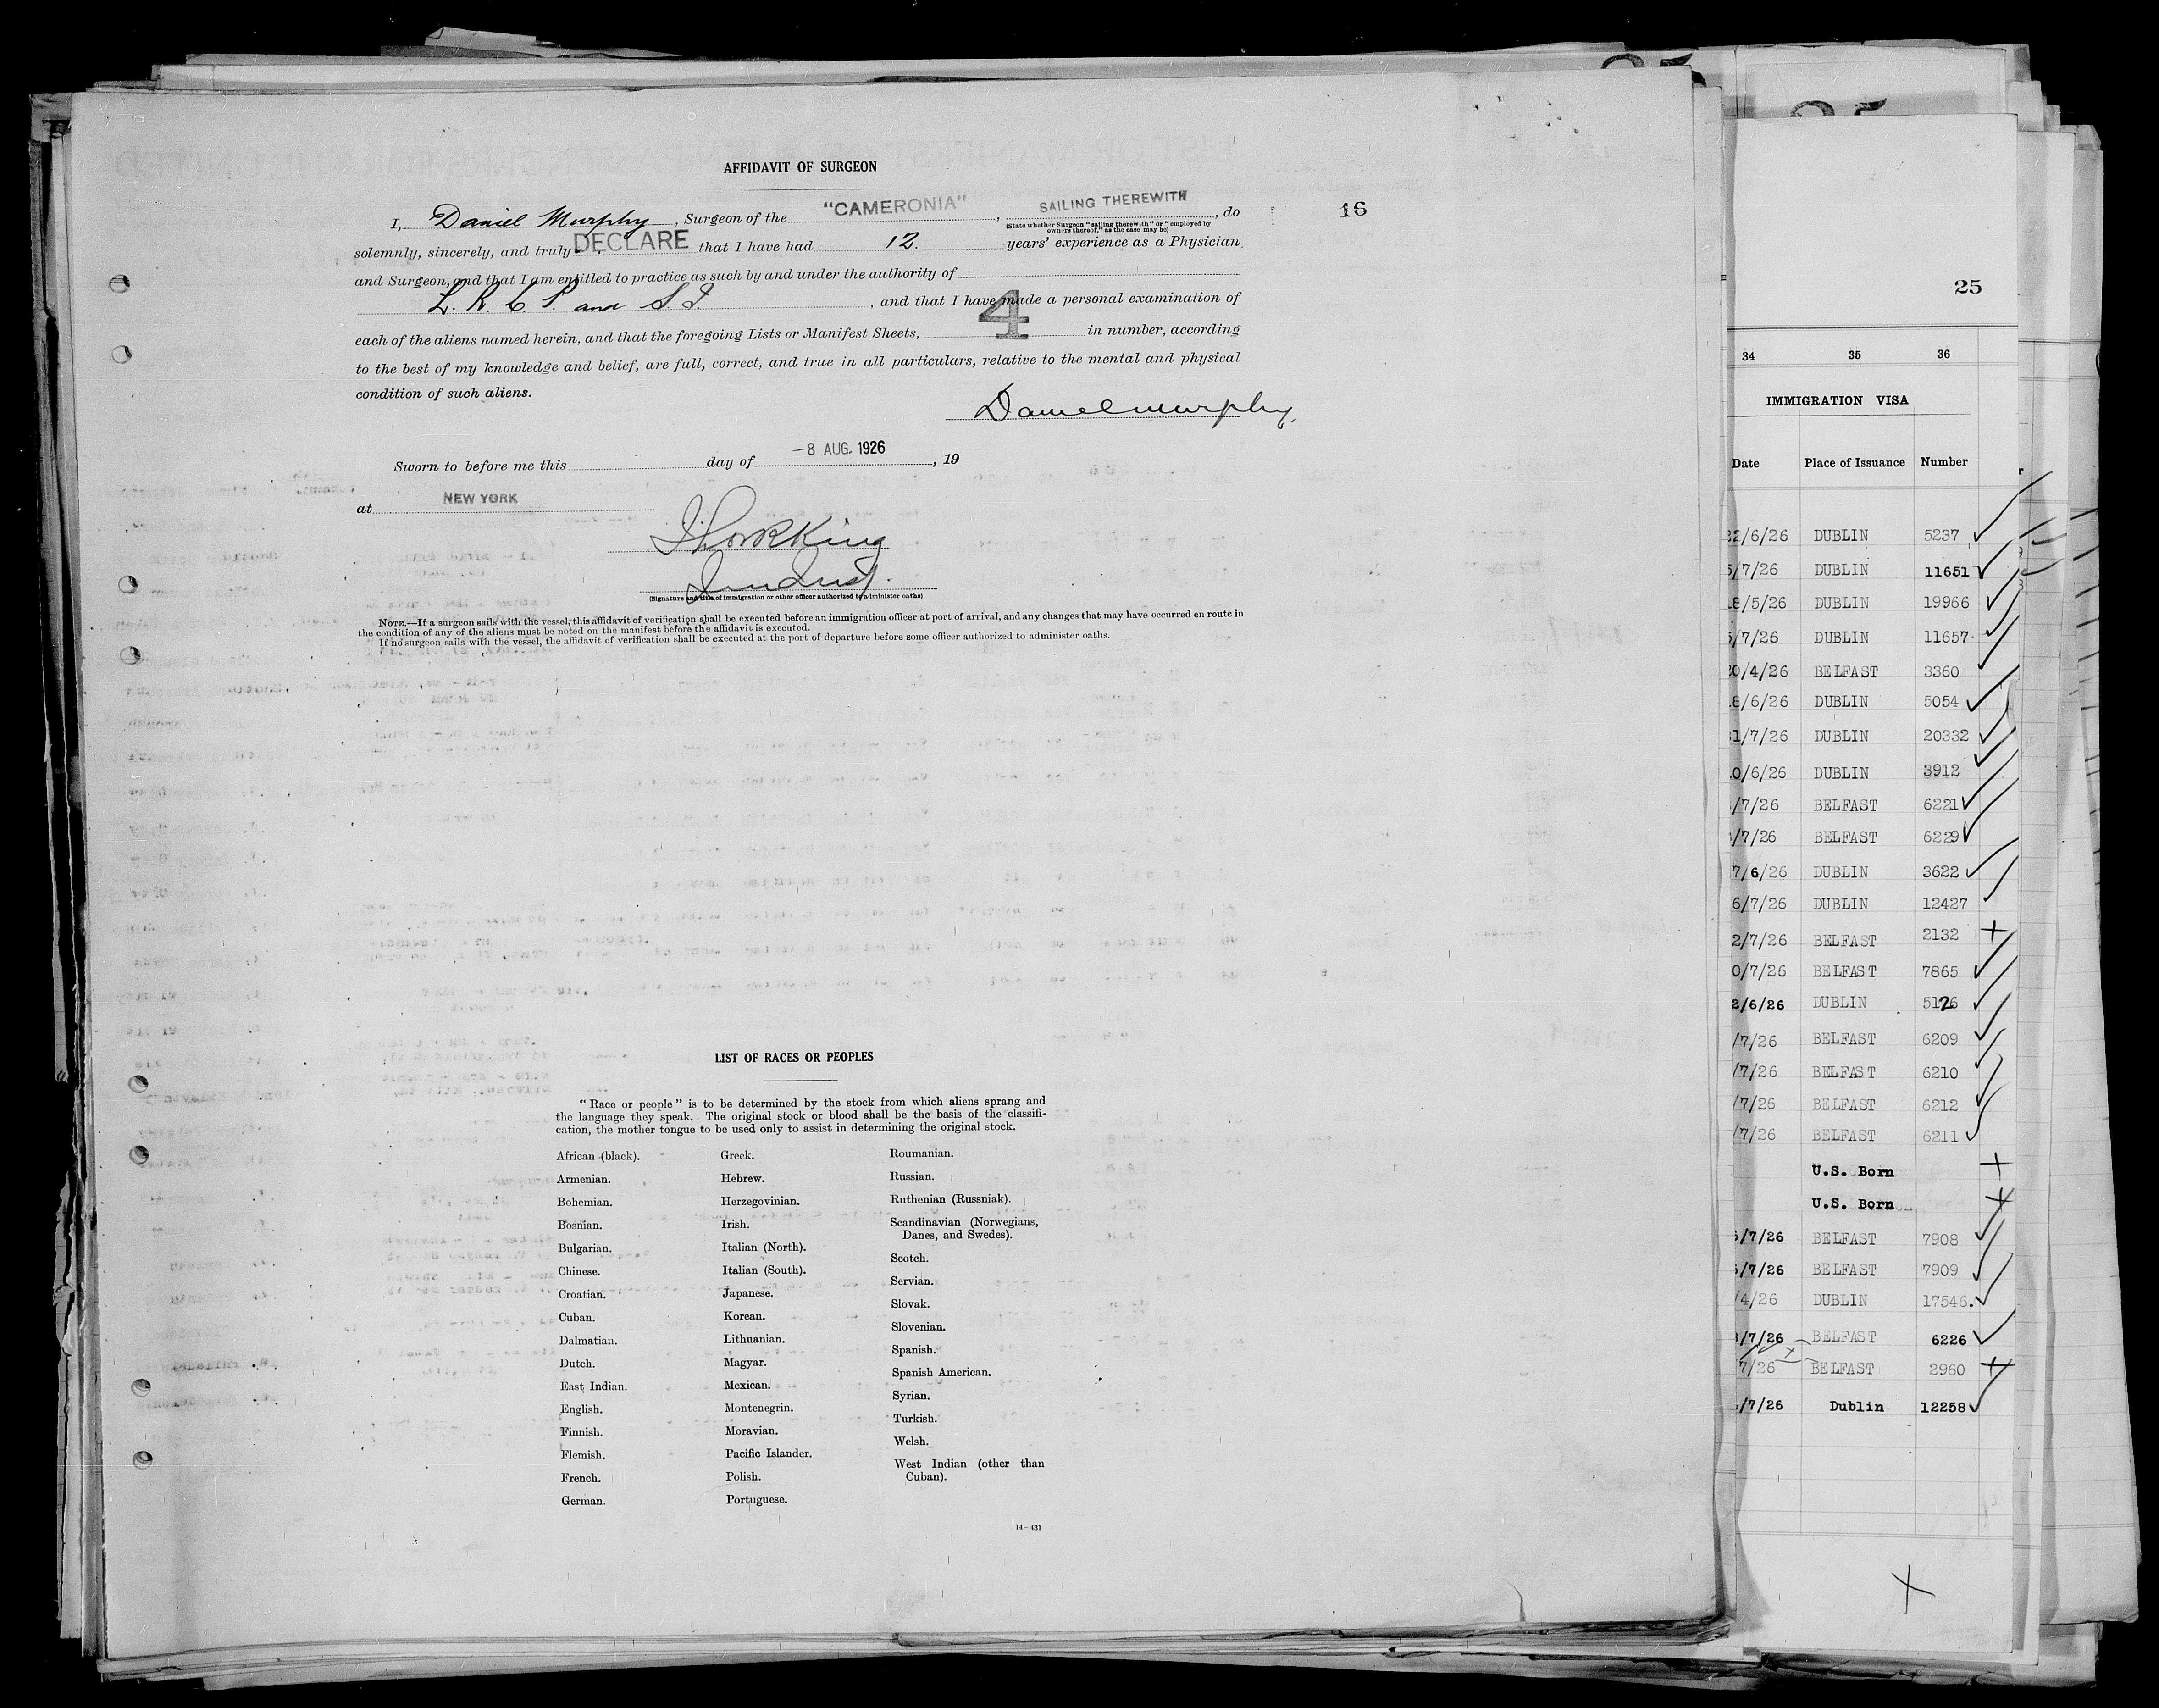 AFFIDAVIT OF SURGEON
I, Daniel Murphy, Surgeon of the "CAMERONIA", SAILING THEREWITH, do
(State whether Surgeon "sailing therewith" or "employed by
owners thereof," as the case may be)
solemnly, sincerely, and truly DECLARE that I have had 12. years' experience as a Physician
and Surgeon, and that I am entitled to practice as such by and under the authority of
L. R. C. P. and S. I., and that I have made a personal examination of
each of the aliens named herein, and that the foregoing Lists or Manifest Sheets, 4 in number, according
to the best of my knowledge and belief, are full, correct, and true in all particulars, relative to the mental and physical
condition of such aliens.
Daniel Murphy.
Sworn to before me this day of -8 AUG. 1926, 19
at NEW YORK
King
(Signature and title of immigration or other officer authorized to administer oaths)
NOTE.—If a surgeon sails with the vessel, this affidavit of verification shall be executed before an immigration officer at port of arrival, and any changes that may have occurred en route in
the condition of any of the aliens must be noted on the manifest before the affidavit is executed.
If no surgeon sails with the vessel, the affidavit of verification shall be executed at the port of departure before some officer authorized to administer oaths.
16
LIST OF RACES OR PEOPLES
"Race or people" is to be determined by the stock from which aliens sprang and
the language they speak. The original stock or blood shall be the basis of the classifi-
cation, the mother tongue to be used only to assist in determining the original stock.
African (black).
Armenian.
Bohemian.
Bosnian.
Bulgarian.
Chinese.
Croatian.
Cuban.
Dalmatian.
Dutch.
East Indian.
English.
Finnish.
Flemish.
French.
German.
Greek.
Hebrew.
Herzegovinian.
Irish.
Italian (North).
Italian (South).
Japanese.
Korean.
Lithuanian.
Magyar.
Mexican.
Montenegrin.
Moravian.
Pacific Islander.
Polish.
Portuguese.
Roumanian.
Russian.
Ruthenian (Russniak).
Scandinavian (Norwegians,
Danes, and Swedes).
Scotch.
Servian.
Slovak.
Slovenian.
Spanish.
Spanish American.
Syrian.
Turkish.
Welsh.
West Indian (other than
Cuban).
14—431
25
34 35 36
IMMIGRATION VISA
Date Place of Issuance Number
22/6/26 DUBLIN 5237
5/7/26 DUBLIN 11651
8/5/26 DUBLIN 19966
5/7/26 DUBLIN 11657
20/4/26 BELFAST 3360
8/6/26 DUBLIN 5054
1/7/26 DUBLIN 20332
0/6/26 DUBLIN 3912
/7/26 BELFAST 6221
/7/26 BELFAST 6229
7/6/26 DUBLIN 3622
6/7/26 DUBLIN 12427
2/7/26 BELFAST 2132
0/7/26 BELFAST 7865
2/6/26 DUBLIN 5126
/7/26 BELFAST 6209
/7/26 BELFAST 6210
/7/26 BELFAST 6212
/7/26 BELFAST 6211
U.S. Born
U.S. Born
/7/26 BELFAST 7908
/7/26 BELFAST 7909
/4/26 DUBLIN 17546.
/7/26 BELFAST 6226
7/26 BELFAST 2960
/7/26 Dublin 12258